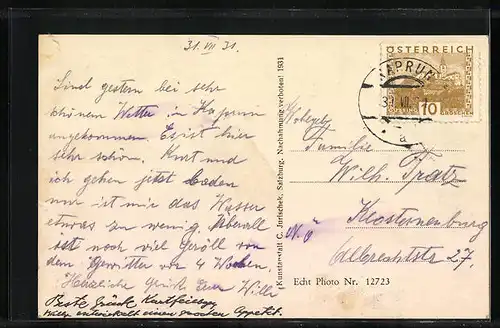 31. VII 31.
Sind gestern bei sehr
schönem Wetter in Kaprun
angekommen. Es ist hier
sehr schön. Kurt und
ich gehen jetzt baden
nur ist mir das Wasser
etwas zu wenig. Überall
ist noch viel Geröll von
dem Gewitter vor 4 Wochen.
Herzliche Grüße Euer Willi
Beste Grüße Kurt
Willi entwickelt einen großen Appetit.
Kunstanstalt C. Jurischek, Salzburg. Nachahmung verboten! 1931
ÖSTERREICH
10
GROSCHEN
KAPRUN
VII.
a
Familie
Wilh. Tratz
Klosterneuburg
N.Ö
Albrechtstr 27.
Echt Photo Nr. 12723